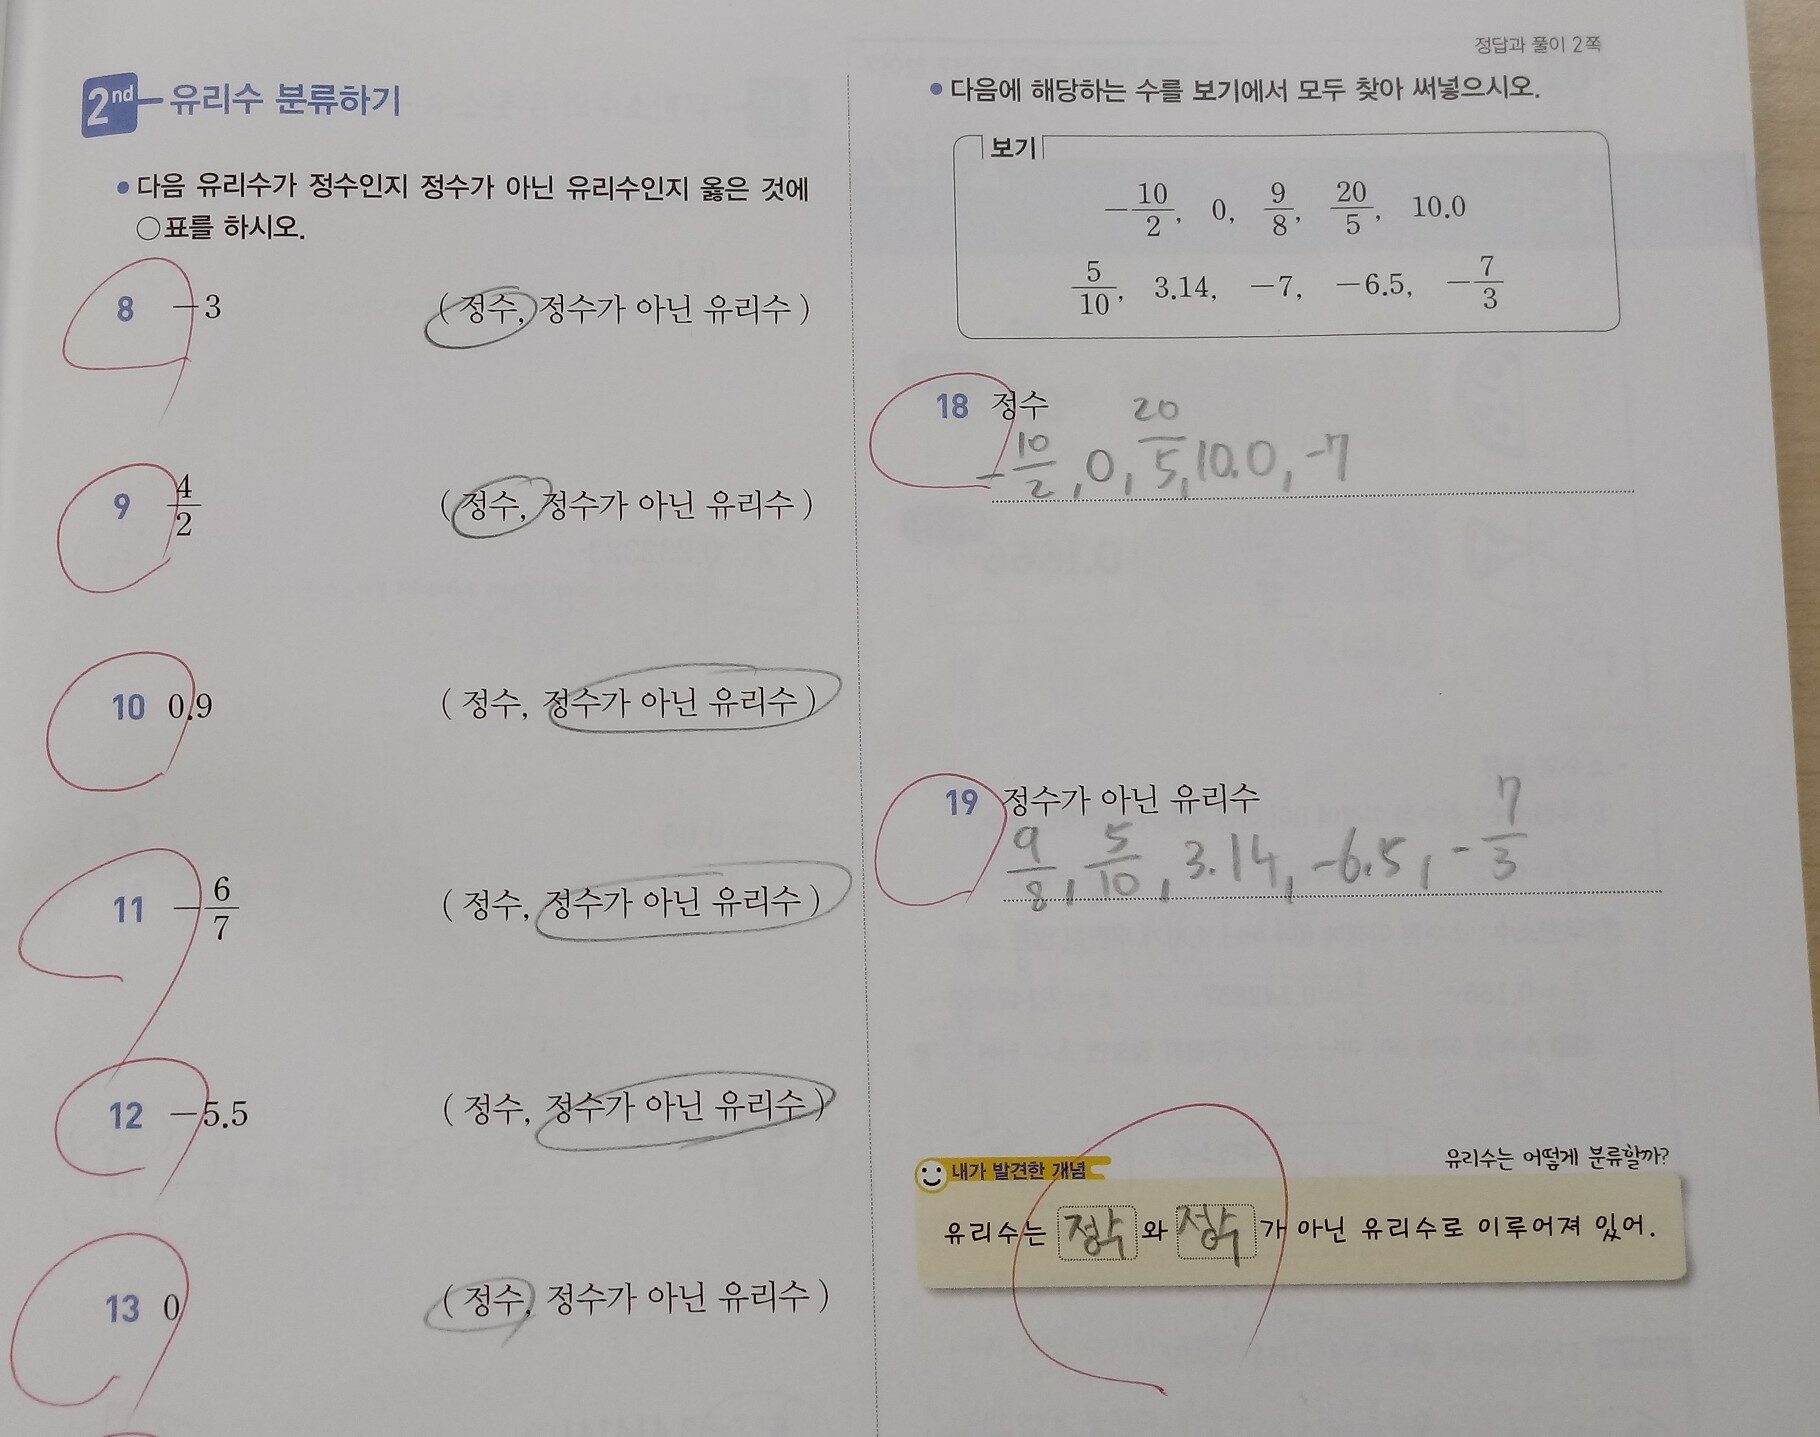 정답과 풀이 2쪽
2nd 유리수 분류하기
• 다음 유리수가 정수인지 정수가 아닌 유리수인지 옳은 것에
○표를 하시오.
8 −3 ( 정수, 정수가 아닌 유리수 )
9 4/2 ( 정수, 정수가 아닌 유리수 )
10 0.9 ( 정수, 정수가 아닌 유리수 )
11 −6/7 ( 정수, 정수가 아닌 유리수 )
12 −5.5 ( 정수, 정수가 아닌 유리수 )
13 0 ( 정수, 정수가 아닌 유리수 )
• 다음에 해당하는 수를 보기에서 모두 찾아 써넣으시오.
보기
−10/2, 0, 9/8, 20/5, 10.0
5/10, 3.14, −7, −6.5, −7/3
18 정수
−10/2, 0, 20/5, 10.0, −7
19 정수가 아닌 유리수
9/8, 5/10, 3.14, −6.5, −7/3
유리수는 어떻게 분류할까?
내가 발견한 개념
유리수는 정수 와 정수 가 아닌 유리수로 이루어져 있어.